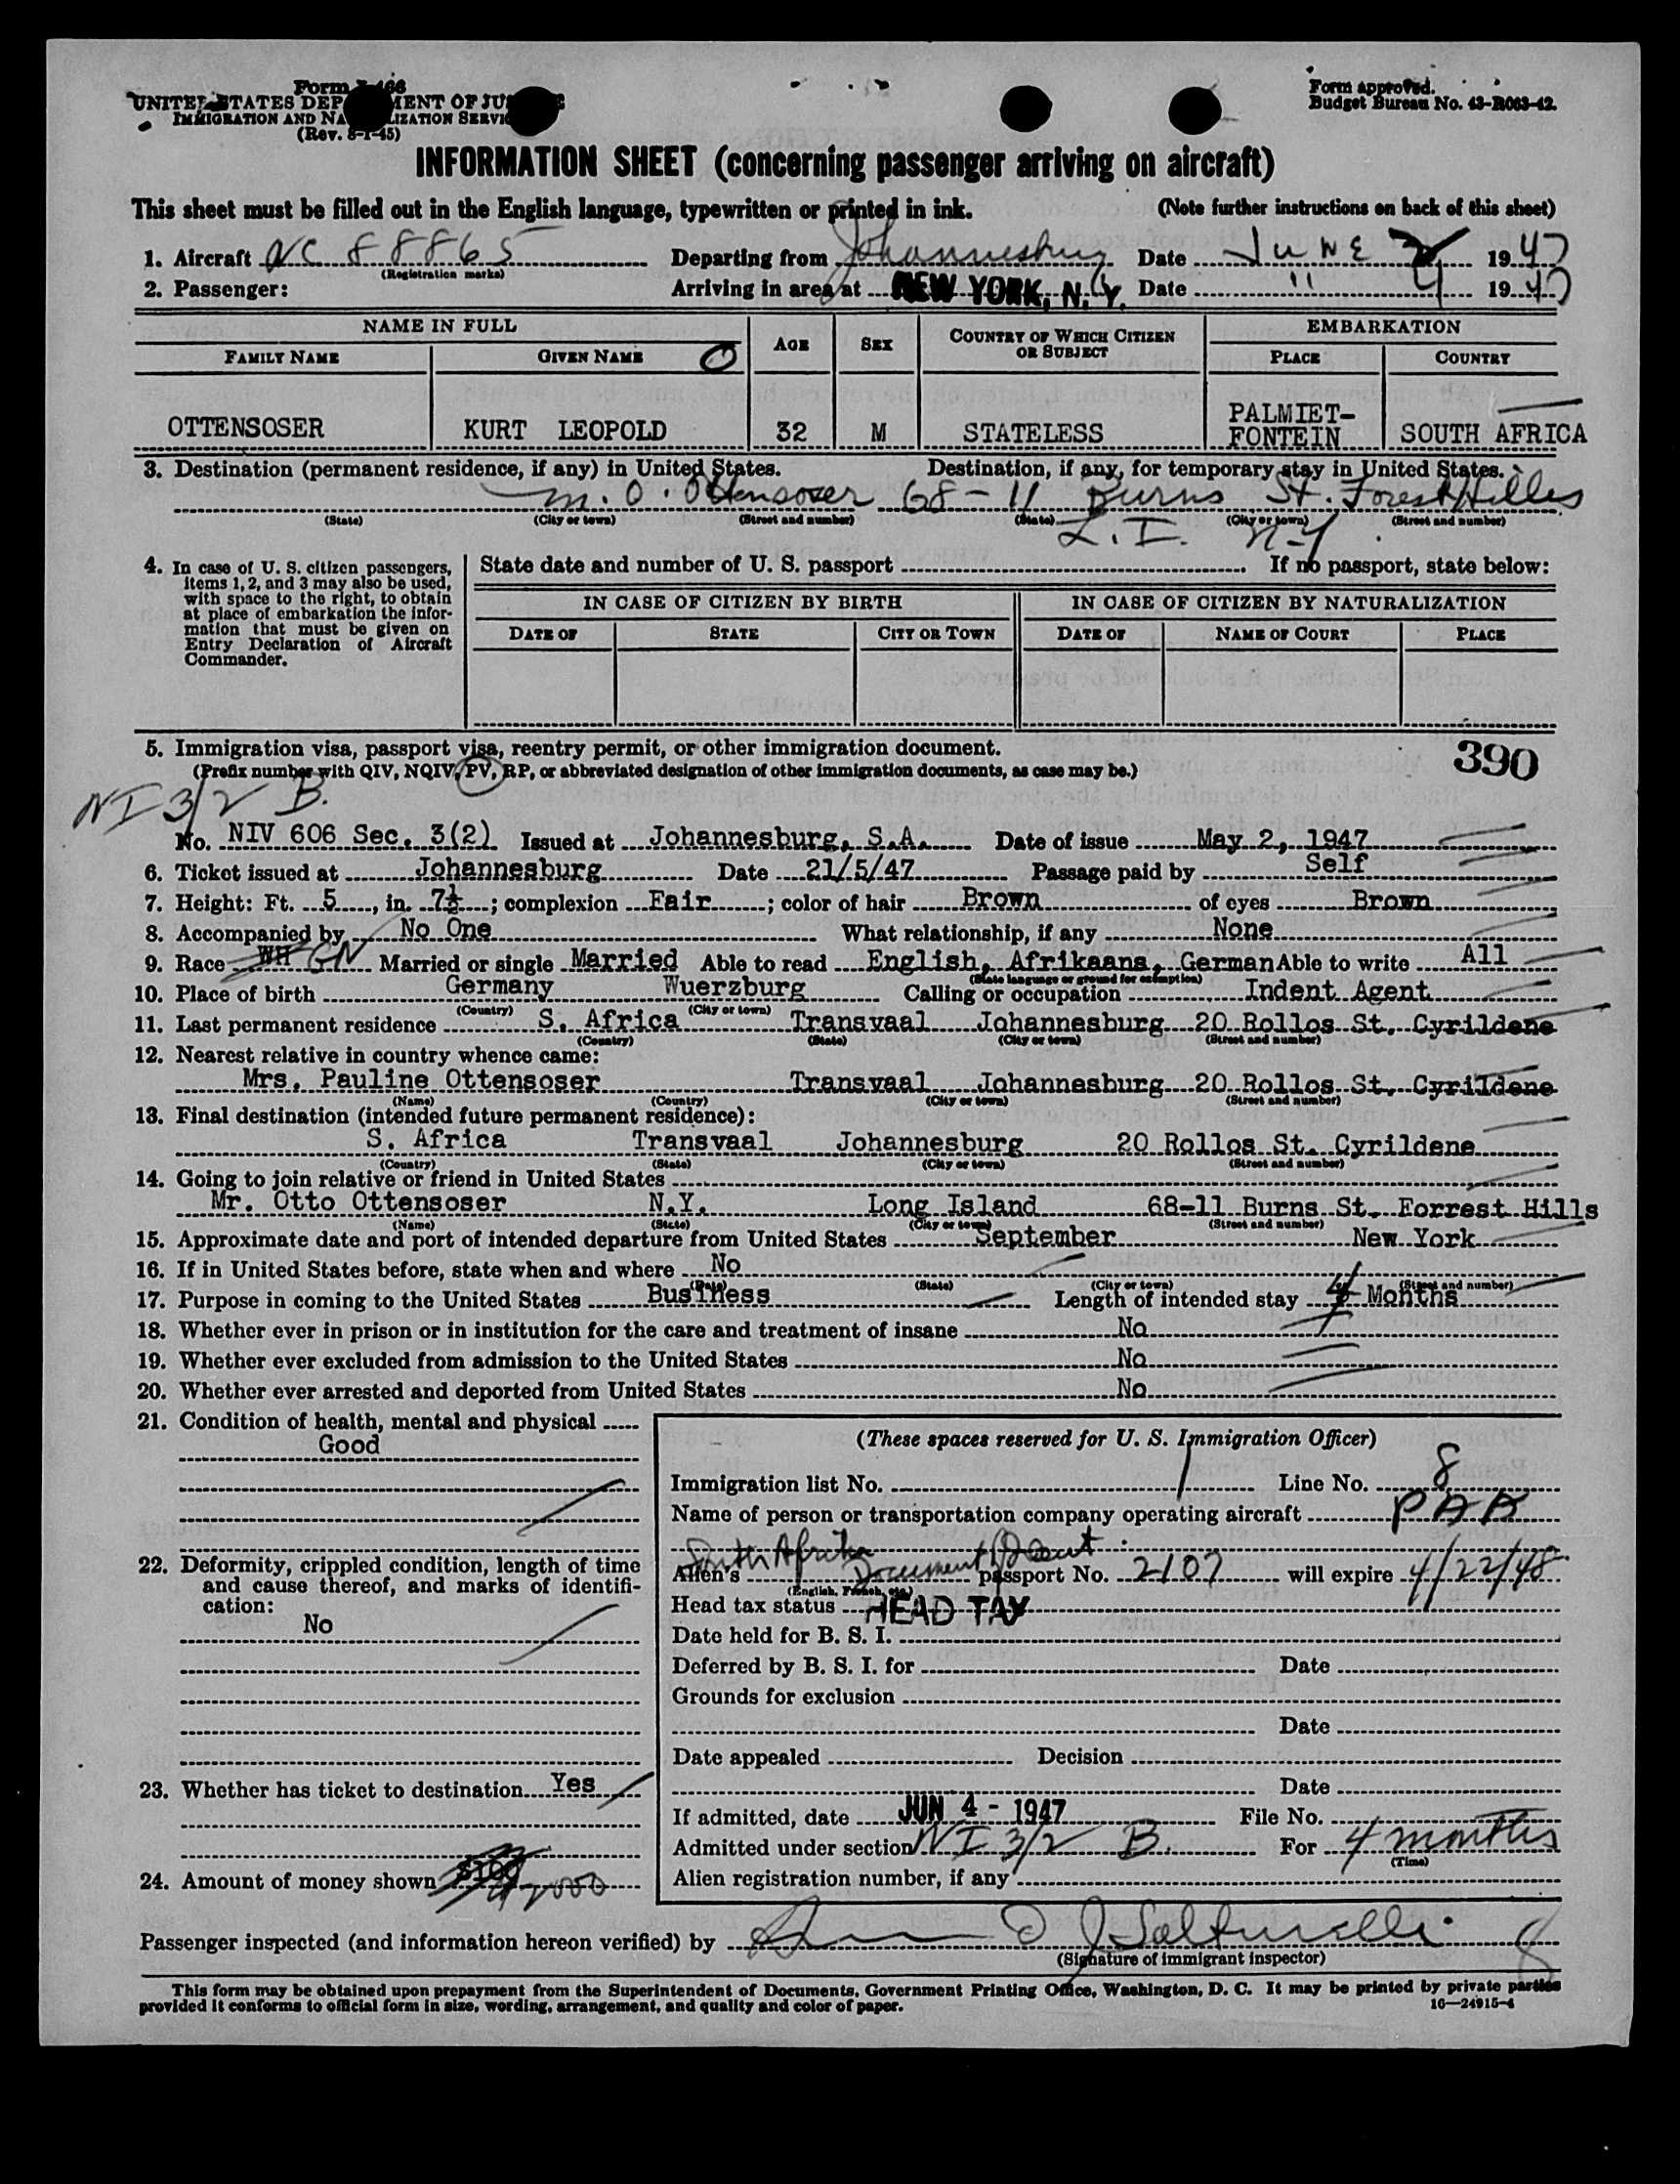 Form I-466
UNITED STATES DEPARTMENT OF JUSTICE
IMMIGRATION AND NATURALIZATION SERVICE
(Rev. 8-1-45)
Form approved.
Budget Bureau No. 43-R063-42.
INFORMATION SHEET (concerning passenger arriving on aircraft)
This sheet must be filled out in the English language, typewritten or printed in ink. (Note further instructions on back of this sheet)
1. Aircraft NC 88865 Departing from Johannesburg Date JUNE 2 1947
(Registration marks)
2. Passenger: Arriving in area at NEW YORK, N. Y. Date " 4 1947
NAME IN FULL AGE SEX COUNTRY OF WHICH CITIZEN OR SUBJECT EMBARKATION
FAMILY NAME GIVEN NAME O PLACE COUNTRY
OTTENSOSER KURT LEOPOLD 32 M STATELESS PALMIET-FONTEIN SOUTH AFRICA
3. Destination (permanent residence, if any) in United States. Destination, if any, for temporary stay in United States.
m. O. Ottensoser 68-11 Burns St. Forest Hills
(State) (City or town) (Street and number) (State) (City or town) (Street and number)
L. I. N-Y
4. In case of U. S. citizen passengers, items 1, 2, and 3 may also be used, with space to the right, to obtain at place of embarkation the information that must be given on Entry Declaration of Aircraft Commander.
State date and number of U. S. passport If no passport, state below:
IN CASE OF CITIZEN BY BIRTH IN CASE OF CITIZEN BY NATURALIZATION
DATE OF STATE CITY OR TOWN DATE OF NAME OF COURT PLACE
5. Immigration visa, passport visa, reentry permit, or other immigration document. 390
(Prefix number with QIV, NQIV, PV, RP, or abbreviated designation of other immigration documents, as case may be.)
NI 3/2 B.
No. NIV 606 Sec. 3(2) Issued at Johannesburg, S.A. Date of issue May 2, 1947
6. Ticket issued at Johannesburg Date 21/5/47 Passage paid by Self
7. Height: Ft. 5, in. 7½; complexion Fair; color of hair Brown of eyes Brown
8. Accompanied by No One What relationship, if any None
9. Race WH GN Married or single Married Able to read English, Afrikaans, German Able to write All
(State language or ground for exemption)
10. Place of birth Germany Wuerzburg Calling or occupation Indent Agent
(Country) (City or town)
11. Last permanent residence S. Africa Transvaal Johannesburg 20 Rollos St. Cyrildene
(Country) (State) (City or town) (Street and number)
12. Nearest relative in country whence came:
Mrs. Pauline Ottensoser Transvaal Johannesburg 20 Rollos St. Cyrildene
(Name) (Country) (City or town) (Street and number)
13. Final destination (intended future permanent residence):
S. Africa Transvaal Johannesburg 20 Rollos St. Cyrildene
(Country) (State) (City or town) (Street and number)
14. Going to join relative or friend in United States
Mr. Otto Ottensoser N.Y. Long Island 68-11 Burns St. Forrest Hills
(Name) (State) (City or town) (Street and number)
15. Approximate date and port of intended departure from United States September New York
16. If in United States before, state when and where No
(Date) (State) (City or town) (Street and number)
17. Purpose in coming to the United States Business Length of intended stay 4 Months
18. Whether ever in prison or in institution for the care and treatment of insane No
19. Whether ever excluded from admission to the United States No
20. Whether ever arrested and deported from United States No
21. Condition of health, mental and physical
Good
22. Deformity, crippled condition, length of time and cause thereof, and marks of identification:
No
23. Whether has ticket to destination Yes
24. Amount of money shown $100 2000
(These spaces reserved for U. S. Immigration Officer)
Immigration list No. 1 Line No. 8
Name of person or transportation company operating aircraft PAA
South Africa
Alien's Document passport No. 2107 will expire 4/22/48
(English, French, etc.)
Head tax status HEAD TAX
Date held for B. S. I.
Deferred by B. S. I. for Date
Grounds for exclusion
Date
Date appealed Decision
Date
If admitted, date JUN 4 - 1947 File No.
Admitted under section NI 3/2 B. For 4 months
(Time)
Alien registration number, if any
Passenger inspected (and information hereon verified) by
(Signature of immigrant inspector) 8
This form may be obtained upon prepayment from the Superintendent of Documents, Government Printing Office, Washington, D. C. It may be printed by private parties
provided it conforms to official form in size, wording, arrangement, and quality and color of paper. 16—24915-4